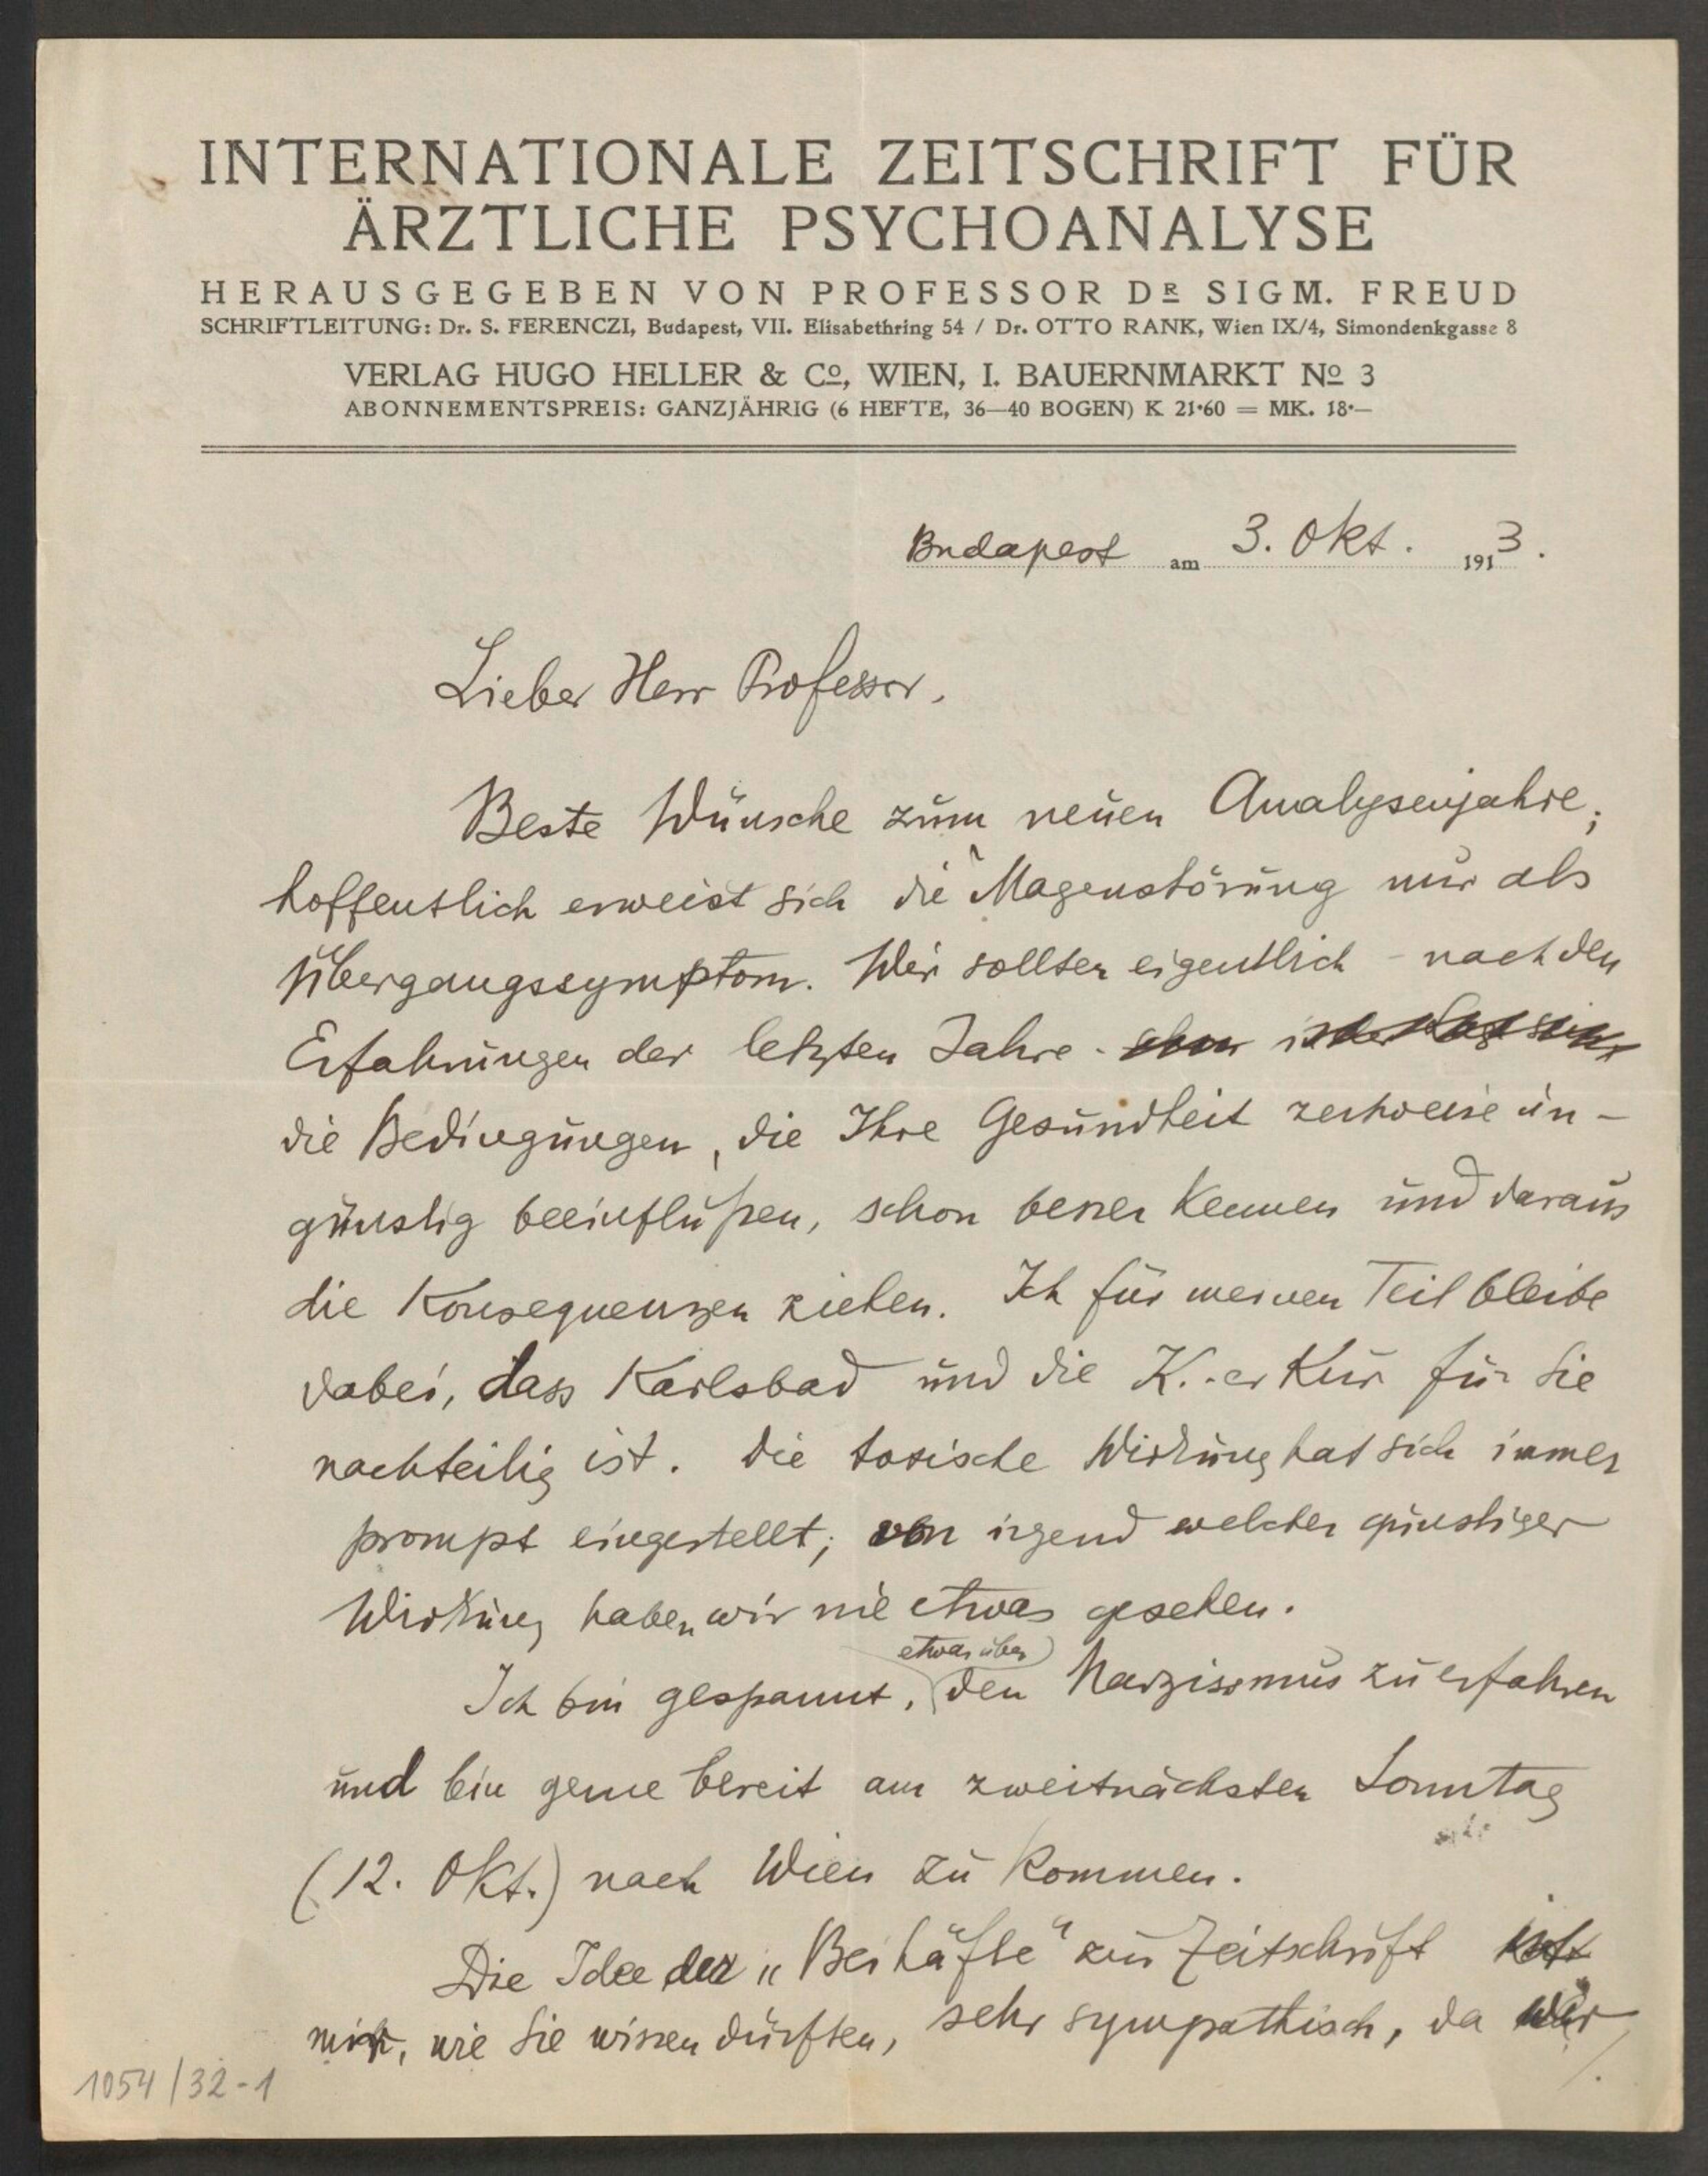 INTERNATIONALE ZEITSCHRIFT FÜR
ÄRZTLICHE PSYCHOANALYSE
HERAUSGEGEBEN VON PROFESSOR DR SIGM. FREUD
SCHRIFTLEITUNG: Dr. S. FERENCZI, Budapest, VII. Elisabethring 54 / Dr. OTTO RANK, Wien IX/4, Simondenkgasse 8
VERLAG HUGO HELLER & Co, WIEN, I. BAUERNMARKT No 3
ABONNEMENTSPREIS: GANZJÄHRIG (6 HEFTE, 36—40 BOGEN) K 21·60 = MK. 18·—
Budapest am 3. Okt. 1913.
Lieber Herr Professor,
Beste Wünsche zum neuen Analysenjahre;
hoffentlich erweist sich die Magenstörung nur als
Übergangssymptom. Wir sollten eigentlich - nach den
Erfahrungen der letzten Jahre -
die Bedingungen, die Ihre Gesundheit zeitweise un-
günstig beeinflußen, schon besser kennen und daraus
die Konsequenzen ziehen. Ich für meinen Teil bleibe
dabei, dass Karlsbad und die K.-er Kur für Sie
nachteilig ist. Die toxische Wirkung hat sich immer
prompt eingestellt; von irgend welcher günstiger
Wirkung haben wir nie etwas gesehen.
Ich bin gespannt, etwas über den Narzissmus zu erfahren
und bin gerne bereit am zweitnächsten Sonntag
(12. Okt.) nach Wien zu kommen.
Die Idee der „Beihäfte" zur Zeitschrift ist
mir, wie Sie wissen dürften, sehr sympathisch, da wir
1054/32-1